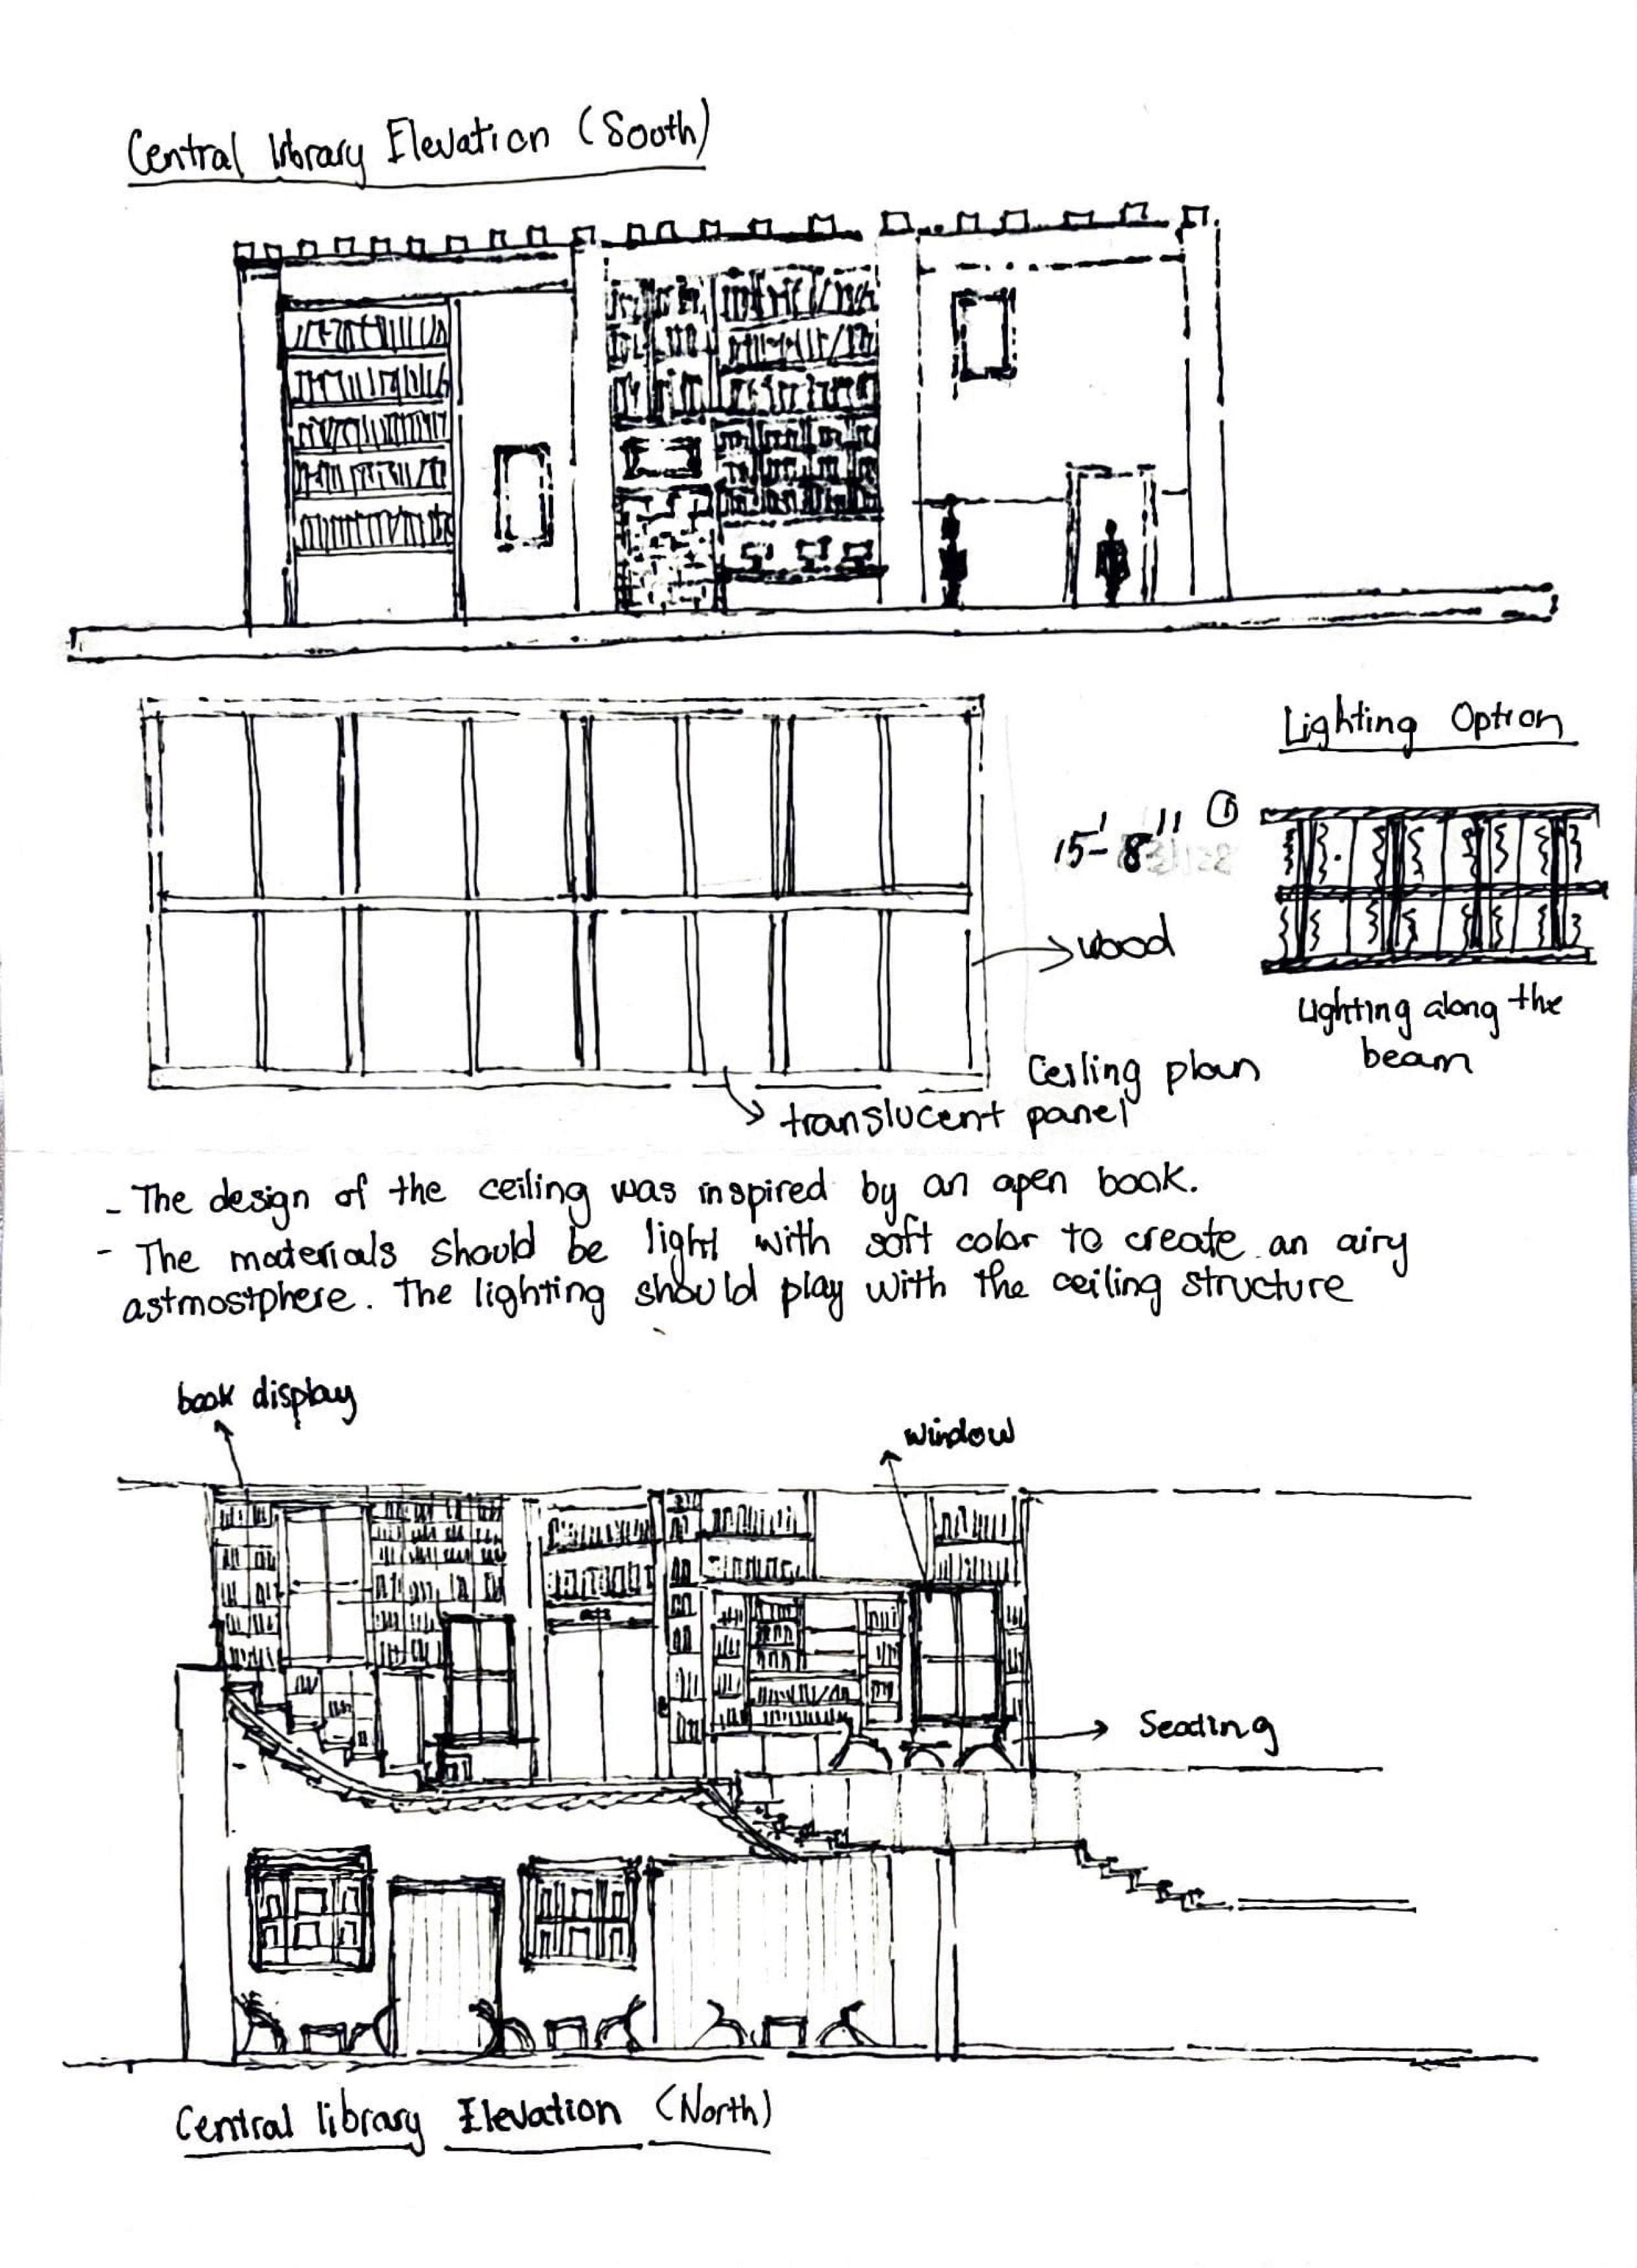 Central library Elevation (South)
Lighting Option
15'-8" ①
wood
Lighting along the
beam
Ceiling plan
translucent panel
- The design of the ceiling was inspired by an open book.
- The materials should be light with soft color to create an airy
astmostphere. The lighting should play with the ceiling structure
book display
window
Seading
Central library Elevation (North)